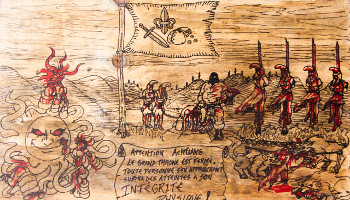 ATTENTION ACHTUNG
LE GRAND THRONE EST FERMÉ,
TOUTE PERSONNE S'EN APPROCHANT
SUBIRA DES ATTEINTES A SON
INTEGRITE
PHYSIQUE !